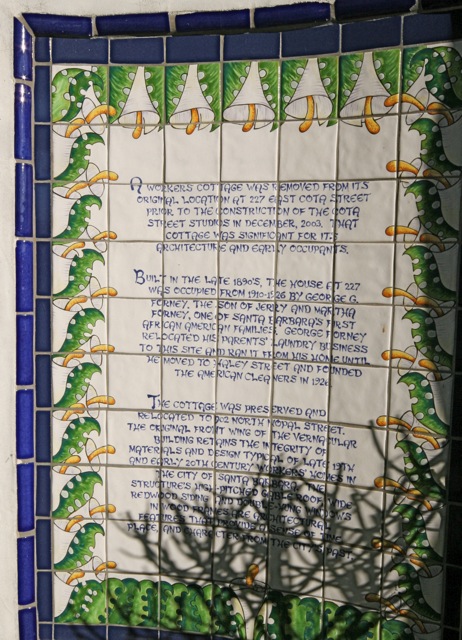 A WORKERS COTTAGE WAS REMOVED FROM ITS
ORIGINAL LOCATION AT 227 EAST COTA STREET
PRIOR TO THE CONSTRUCTION OF THE COTA
STREET STUDIOS IN DECEMBER, 2003. THAT
COTTAGE WAS SIGNIFICANT FOR ITS
ARCHITECTURE AND EARLY OCCUPANTS.
BUILT IN THE LATE 1890'S, THE HOUSE AT 227
WAS OCCUPIED FROM 1910-1926 BY GEORGE G.
FORNEY, THE SON OF JERRY AND MARTHA
FORNEY, ONE OF SANTA BARBARA'S FIRST
AFRICAN AMERICAN FAMILIES. GEORGE FORNEY
RELOCATED HIS PARENTS' LAUNDRY BUSINESS
TO THIS SITE AND RAN IT FROM HIS HOME UNTIL
HE MOVED TO HALEY STREET AND FOUNDED
THE AMERICAN CLEANERS IN 1926.
THE COTTAGE WAS PRESERVED AND
RELOCATED TO NORTH NOPAL STREET.
THE ORIGINAL FRONT WING OF THE VERNACULAR
BUILDING RETAINS THE INTEGRITY OF
MATERIALS AND DESIGN TYPICAL OF LATE 19TH
AND EARLY 20TH CENTURY WORKERS' HOMES IN
THE CITY OF SANTA BARBARA. THE
STRUCTURE'S HIGH-PITCHED GABLE ROOF, WIDE
REDWOOD SIDING AND DOUBLE-HUNG WINDOWS
IN WOOD FRAMES ARE ARCHITECTURAL
FEATURES THAT PROVIDE A SENSE OF TIME,
PLACE, AND CHARACTER FROM THE CITY'S PAST.